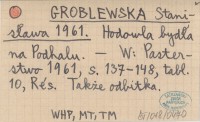 GROBLEWSKA Stani-
sława 1961. Hodowla bydła
na Podhalu. — W: Paster-
stwo 1961, s. 137-148, tabl.
10, Rés. Także odbitka.
WHP, MT, TM